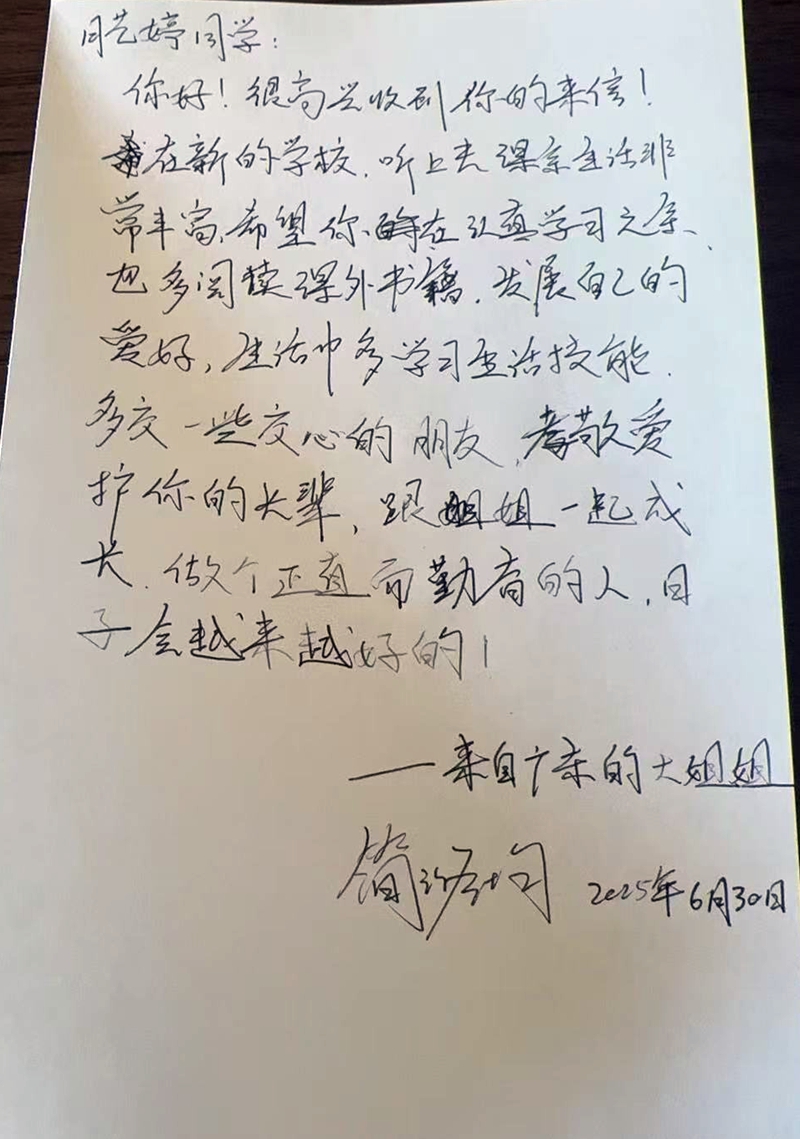 艺婷同学:
你好！很高兴收到你的来信！
在新的学校,听上去课余生活非
常丰富,希望你在认真学习之余、
也多阅读课外书籍,发展自己的
爱好,生活中多学习生活技能.
多交一些交心的朋友,孝敬爱
护你的长辈,跟姐姐一起成
长.做个正直而勤奋的人,日
子会越来越好的!
——来自广东的大姐姐
简 均 2025年6月30日